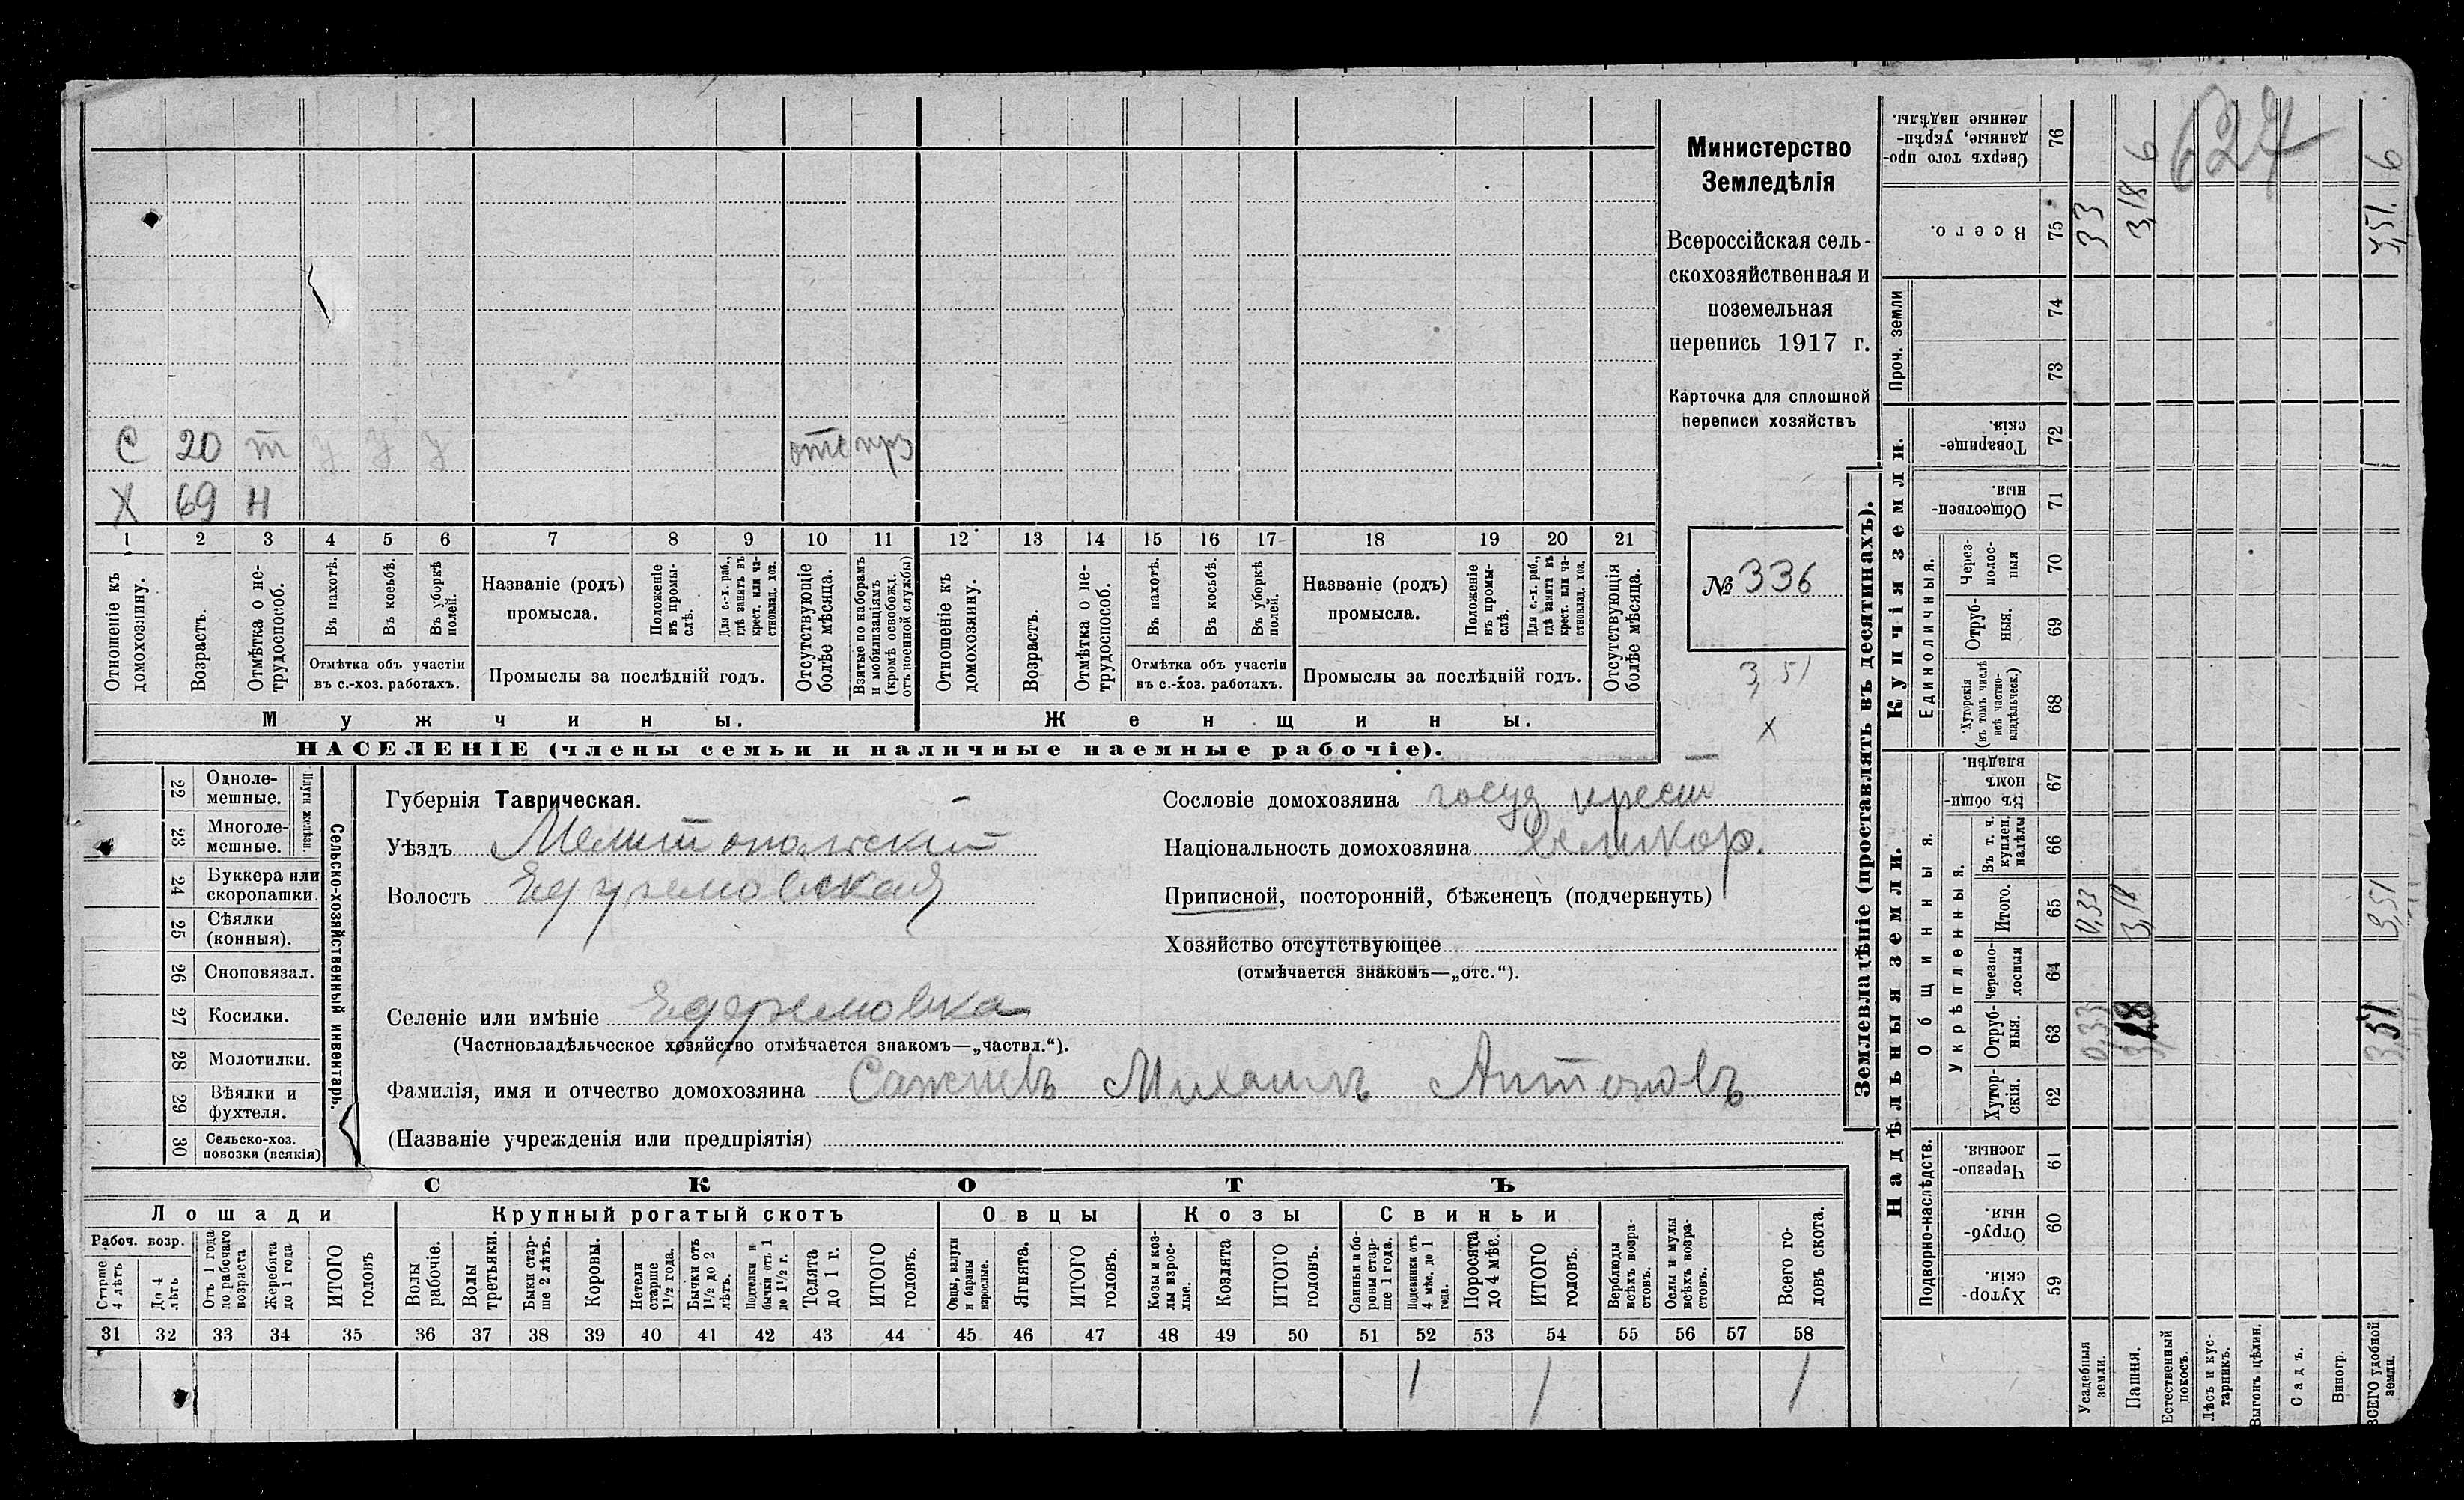 Министерство
Земледѣлія
Всероссійская сель-
скохозяйственная и
поземельная
перепись 1917 г.
Карточка для сплошной
переписи хозяйствъ
№ 336
3,51
х
627
С 20 т у у у отс прз
Х 69 н
1 2 3 4 5 6 7 8 9 10 11 12 13 14 15 16 17 18 19 20 21
Отношеніе къ домохозяину.
Возрастъ.
Отмѣтка о не-трудоспособ.
Въ пахотѣ.
Въ косьбѣ.
Въ уборкѣ полей.
Отмѣтка объ участіи
въ с.-хоз. работахъ.
Названіе (родъ)
промысла.
Положеніе въ промы-слѣ.
Для с.-х. раб., гдѣ занятъ въ крест. или ча-стновлад. хоз.
Промыслы за послѣдній годъ.
Отсутствующіе болѣе мѣсяца.
Взятые по наборамъ и мобилизаціямъ (кромѣ освобожд. отъ военной службы)
Отношеніе къ домохозяину.
Возрастъ.
Отмѣтка о не-трудоспособ.
Въ пахотѣ.
Въ косьбѣ.
Въ уборкѣ полей.
Отмѣтка объ участіи
въ с.-хоз. работахъ.
Названіе (родъ)
промысла.
Положеніе въ промы-слѣ.
Для с.-х. раб., гдѣ занята въ крест. или ча-стновлад. хоз.
Промыслы за послѣдній годъ.
Отсутствующія болѣе мѣсяца.
Мужчины.
Женщины.
НАСЕЛЕНІЕ (члены семьи и наличные наемные рабочіе).
Сельско-хозяйственный инвентарь.
Плуги желѣзн.
22 Одноле-мешные.
23 Многоле-мешные.
24 Буккера или скоропашки.
25 Сѣялки (конныя).
26 Сноповязал.
27 Косилки.
28 Молотилки.
29 Вѣялки и фухтеля.
30 Сельско-хоз. повозки (всякія)
Губернія Таврическая.
Уѣздъ Мелитопольскій
Волость Ефремовская
Селеніе или имѣніе Ефремовка
(Частновладѣльческое хозяйство отмѣчается знакомъ—„частвл.“).
Фамилія, имя и отчество домохозяина Сажневъ Михаилъ Антоновъ
(Названіе учрежденія или предпріятія)
Сословіе домохозяина госуд крест
Національность домохозяина Великор.
Приписной, посторонній, бѣженецъ (подчеркнуть)
Хозяйство отсутствующее
(отмѣчается знакомъ—„отс.“).
СКОТЪ
Лошади
Крупный рогатый скотъ
Овцы
Козы
Свиньи
Рабоч. возр.
Старше 4 лѣтъ
До 4 лѣтъ
Отъ 1 года до рабочаго возраста
Жеребята до 1 года
ИТОГО головъ
Волы рабочіе.
Волы третьяки.
Быки стар-ше 2 лѣтъ.
Коровы.
Нетели старше 1½ года.
Бычки отъ 1½ до 2 лѣтъ.
Подтелки и бычки отъ 1 до 1½ г.
Телята до 1 г.
ИТОГО головъ.
Овцы, валухи и бараны взрослые.
Ягнята.
ИТОГО головъ.
Козы и коз-лы взрос-лые.
Козлята
ИТОГО головъ.
Свиньи и бо-ровы стар-ше 1 года.
Подсвинки отъ 4 мѣс. до 1 года.
Поросята до 4 мѣс.
ИТОГО головъ.
Верблюды всѣхъ возра-стовъ.
Ослы и мулы всѣхъ возра-стовъ.
Всего го-ловъ скота.
31 32 33 34 35 36 37 38 39 40 41 42 43 44 45 46 47 48 49 50 51 52 53 54 55 56 57 58
1 1 1
Землевладѣніе (проставлять въ десятинахъ).
Надѣльныя земли.
Купчія земли.
Проч. земли
Подворно-наслѣдств.
Общинныя.
Укрѣпленныя.
Единоличныя.
Хутор-скія. 59
Отруб-ныя. 60
Черезпо-лосныя. 61
Хутор-скія. 62
Отруб-ныя. 63
Черезпо-лосныя 64
Итого. 65
Въ т. ч. куплен. надѣлы 66
Въ общин-номъ владѣн. 67
Хуторскія (въ томъ числѣ всѣ частно-владѣльческ.) 68
Отруб-ныя. 69
Через-полос-ныя 70
Обществен-ныя. 71
Товарище-скія. 72
73
74
Всего. 75
Сверхъ того про-данные, укрѣп-ленные надѣлы. 76
Усадебныя земли. 0,33 0,33 33
Пашня. 3,18 3,18 3,18 6
Естественный покосъ.
Лѣсъ и кус-тарникъ.
Выгонъ, цѣлин.
Садъ.
Виногр.
ВСЕГО удобной земли. 3,51 3,51 3,51. 6